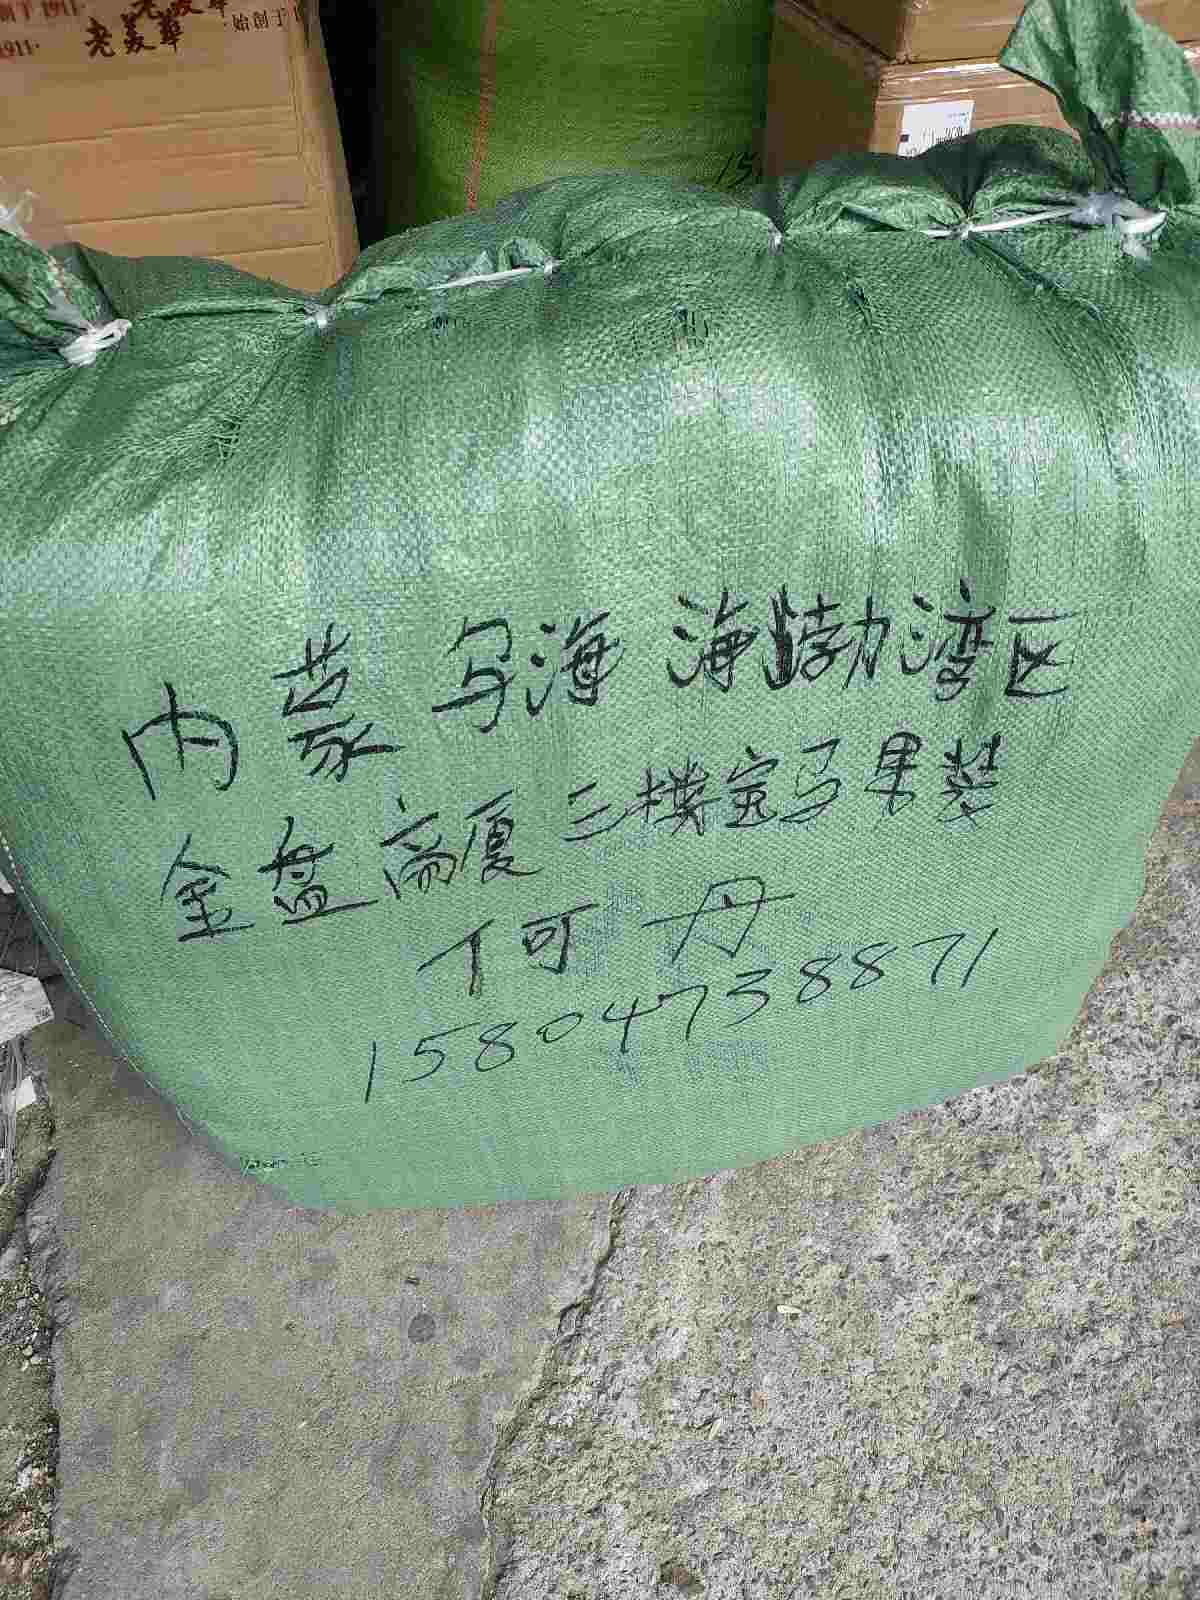 老美華
老美華
1911·
始創于1
内蒙 乌海 海勃湾区
金盘高厦三楼宝马男装
何丹
15804738871